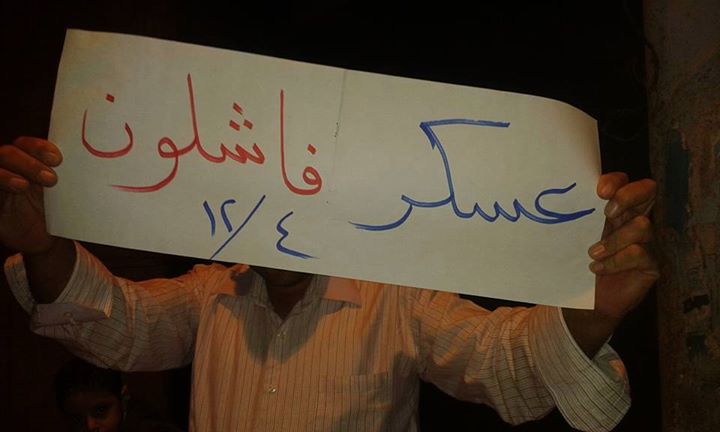 عسكر فاشلون
١٢/٤